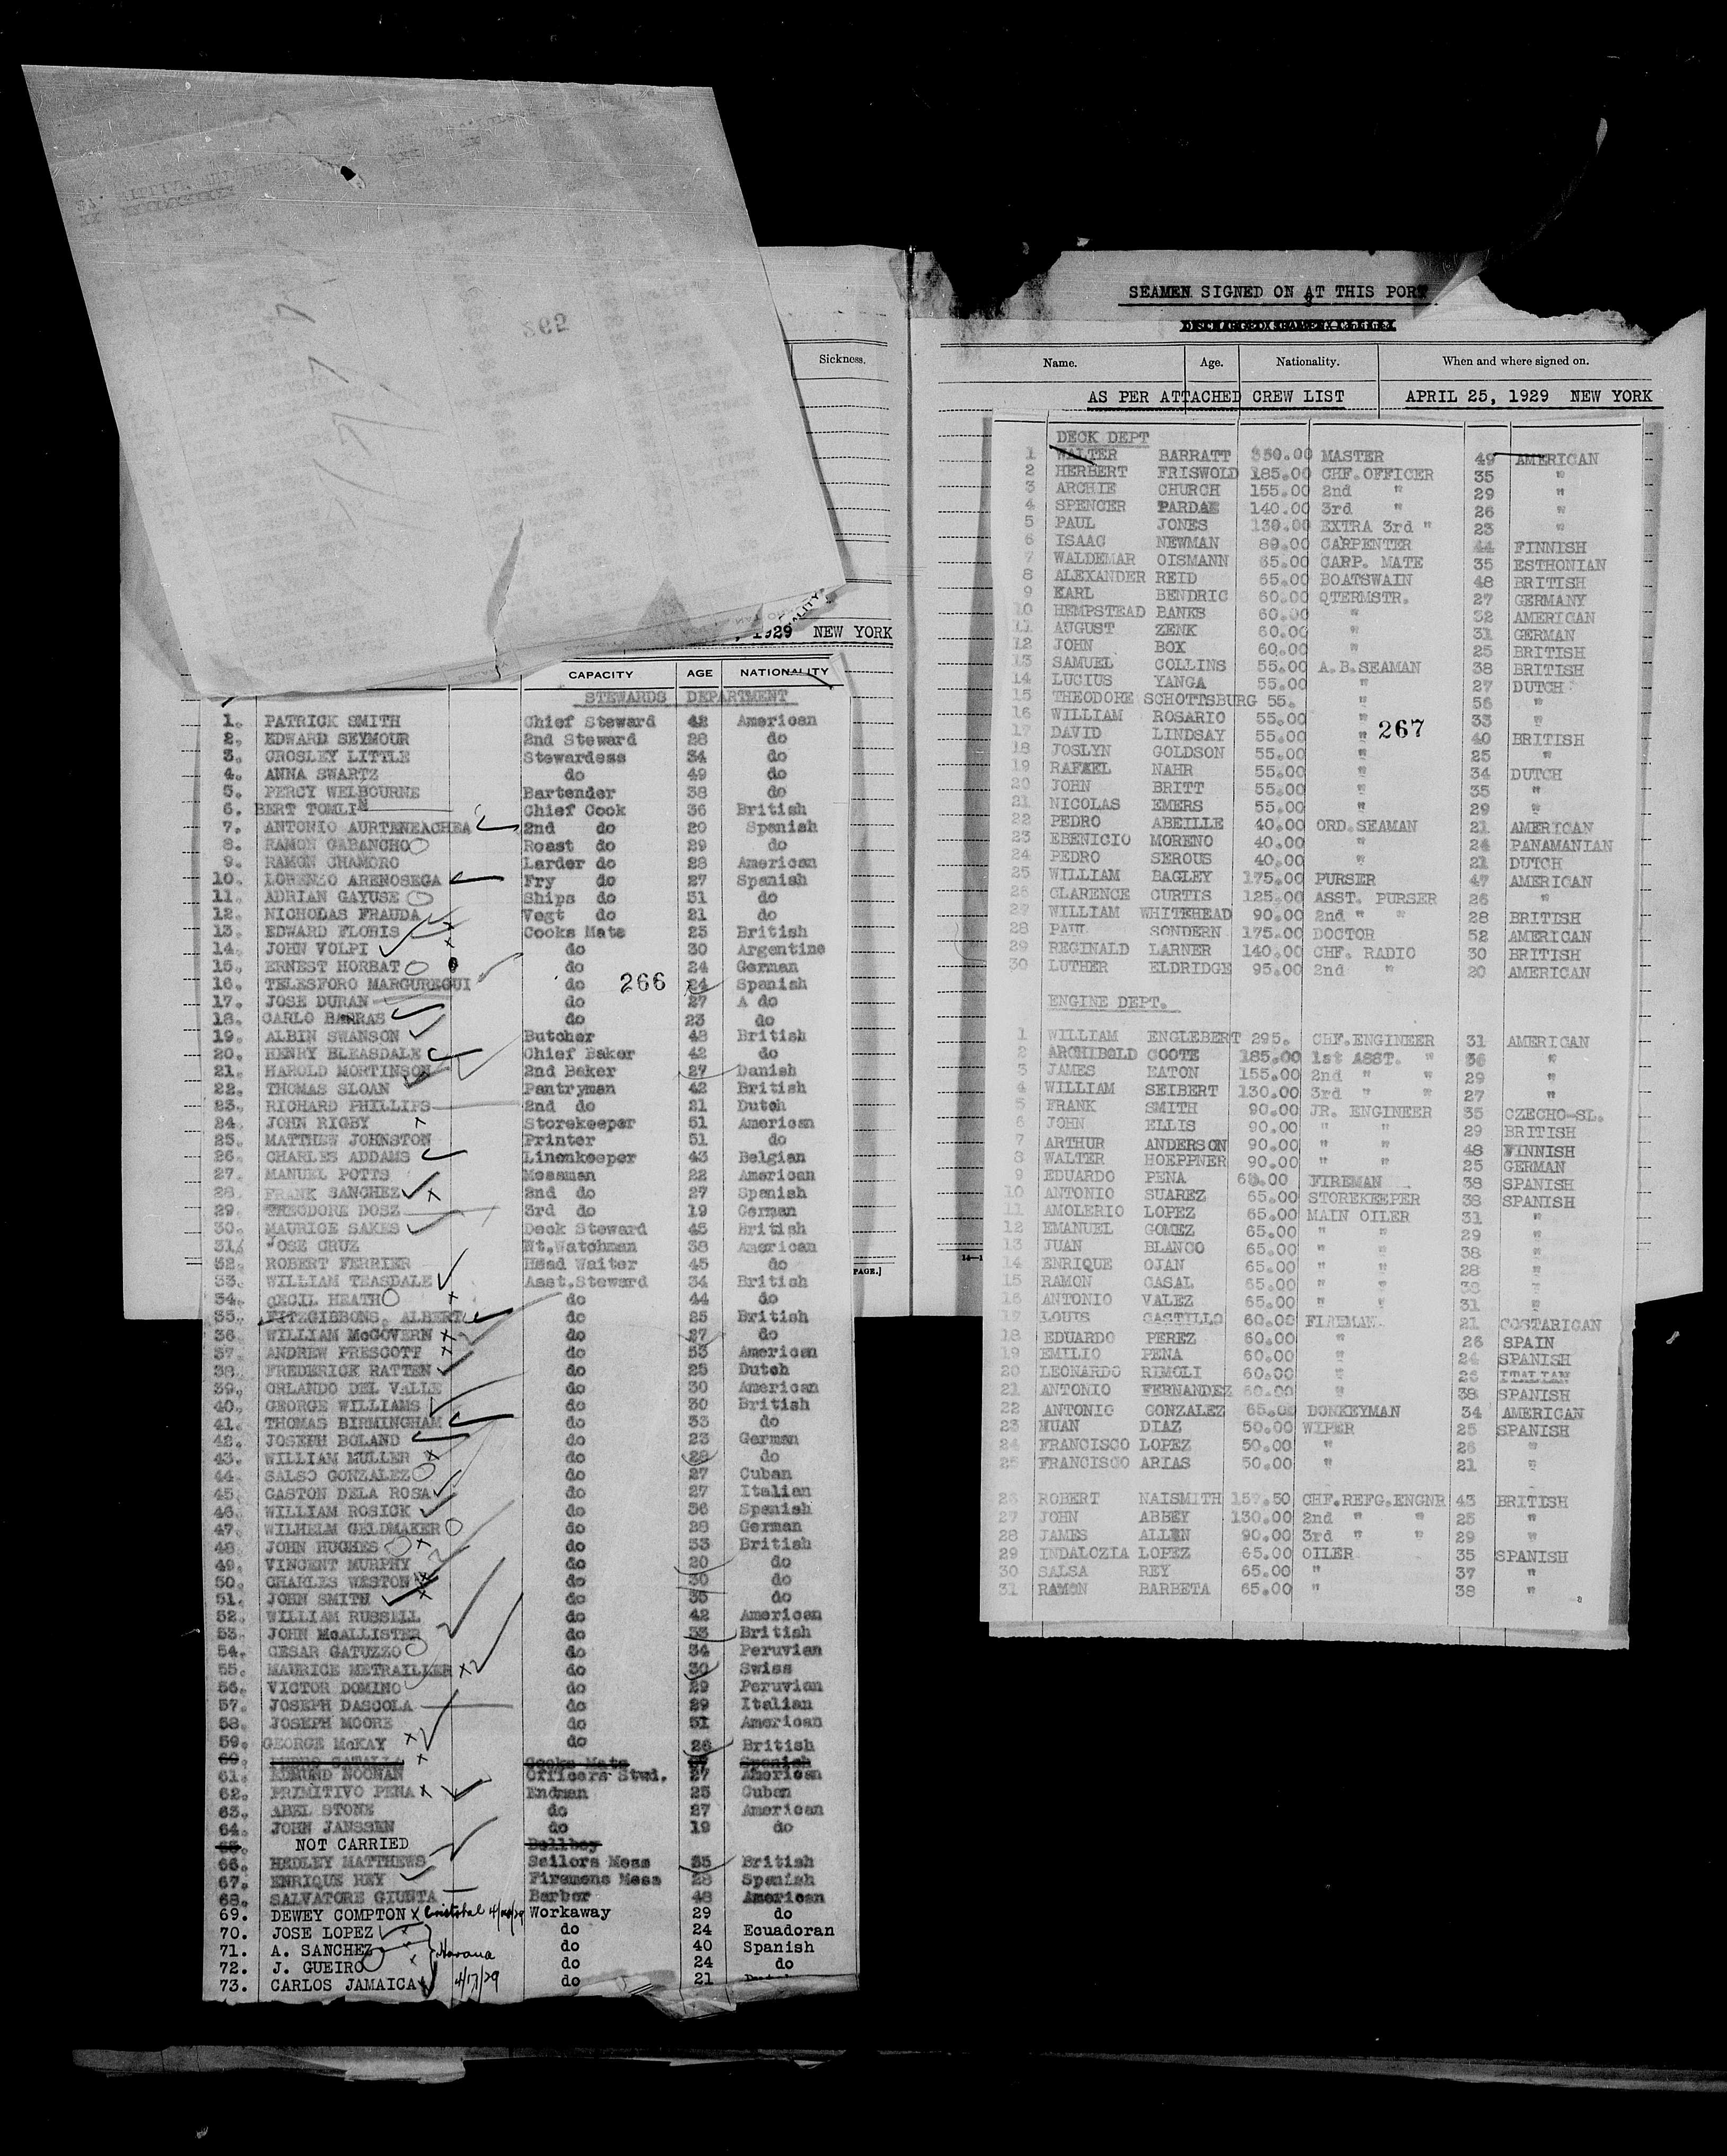 262
Sickness.
, 1929 NEW YORK
CAPACITY AGE NATIONALITY
STEWARDS DEPARTMENT
1. PATRICK SMITH Chief Steward 42 American
2. EDWARD SEYMOUR 2nd Steward 28 do
3. CROSLEY LITTLE Stewardess 34 do
4. ANNA SWARTZ do 49 do
5. PERCY WELBOURNE Bartender 38 do
6. BERT TOMLIN Chief Cook 36 British
7. ANTONIO AURTENEACHEA 2nd do 20 Spanish
8. RAMON GABANCHO Roast do 29 do
9. RAMON CHAMORO Larder do 28 American
10. LORENZO ARENOSEGA Fry do 27 Spanish
11. ADRIAN GAYUSE Ships do 31 do
12. NICHOLAS FRAUDA Vegt do 21 do
13. EDWARD FLORIS Cooks Mate 25 British
14. JOHN VOLPI do 30 Argentine
15. ERNEST HORBAT do 24 German
16. TELESFORO MARGUREGUI do 266 24 Spanish
17. JOSE DURAN do 27 A do
18. CARLO BARRAS do 23 do
19. ALBIN SWANSON Butcher 48 British
20. HENRY BLEASDALE Chief Baker 42 do
21. HAROLD MORTINSON 2nd Baker 27 Danish
22. THOMAS SLOAN Pantryman 42 British
23. RICHARD PHILLIPS 2nd do 21 Dutch
24. JOHN RIGBY Storekeeper 51 American
25. MATTHEW JOHNSTON Printer 51 do
26. CHARLES ADDAMS Linenkeeper 43 Belgian
27. MANUEL POTTS Messman 22 American
28. FRANK SANCHEZ 2nd do 27 Spanish
29. THEODORE DOSZ 3rd do 19 German
30. MAURICE SAKES Deck Steward 45 British
31. JOSE CRUZ Nt.Watchman 38 American
32. ROBERT FERRIER Head Waiter 45 do
33. WILLIAM TEASDALE Asst.Steward 34 British
34. CECIL HEATH do 44 do
35. FITZGIBBONS, ALBERT do 25 British
36. WILLIAM McGOVERN do 27 do
37. ANDREW PRESCOTT do 53 American
38. FREDERICK RATTEN do 25 Dutch
39. ORLANDO DEL VALLE do 30 American
40. GEORGE WILLIAMS do 30 British
41. THOMAS BIRMINGHAM do 33 do
42. JOSEPH BOLAND do 23 German
43. WILLIAM MULLER do 28 do
44. SALSO GONZALEZ do 27 Cuban
45. GASTON DELA ROSA do 27 Italian
46. WILLIAM ROSICK do 36 Spanish
47. WILHELM GELDMAKER do 28 German
48. JOHN HUGHES do 33 British
49. VINCENT MURPHY do 20 do
50. CHARLES WESTON do 30 do
51. JOHN SMITH do 35 do
52. WILLIAM RUSSELL do 42 American
53. JOHN McALLISTER do 33 British
54. CESAR GATUZZO do 34 Peruvian
55. MAURICE METRAILLER do 30 Swiss
56. VICTOR DOMINO do 29 Peruvian
57. JOSEPH DASCOLA do 29 Italian
58. JOSEPH MOORE do 31 American
59. GEORGE McKAY do 26 British
60. Cooks Mate Spanish
61. EDMUND NOONAN Officers Stwd. 27 American
62. PRIMITIVO PENA Endman 25 Cuban
63. ABEL STONE do 27 American
64. JOHN JANSSEN do 19 do
65. NOT CARRIED Bellboy
66. HEDLEY MATTHEWS Sailors Mess 35 British
67. ENRIQUE REY Firemens Mess 28 Spanish
68. SALVATORE GIUNTA Barber 48 American
69. DEWEY COMPTON Cristobal Workaway 29 do
70. JOSE LOPEZ do 24 Ecuadoran
71. A. SANCHEZ Havana do 40 Spanish
72. J. GUEIRO do 24 do
73. CARLOS JAMAICA 4/17/29 do 21
PAGE.]
SEAMEN SIGNED ON AT THIS PORT
Name. Age. Nationality. When and where signed on.
AS PER ATTACHED CREW LIST APRIL 25, 1929 NEW YORK
DECK DEPT
1 WALTER BARRATT 350.00 MASTER 49 AMERICAN
2 HERBERT FRISWOLD 185.00 CHF.OFFICER 35 "
3 ARCHIE CHURCH 155.00 2nd " 29 "
4 SPENCER PARDAE 140.00 3rd " 26 "
5 PAUL JONES 130.00 EXTRA 3rd " 23 "
6 ISAAC NEWMAN 80.00 CARPENTER 44 FINNISH
7 WALDEMAR OISMANN 65.00 CARP. MATE 35 ESTHONIAN
8 ALEXANDER REID 65.00 BOATSWAIN 48 BRITISH
9 KARL BENDRIC 60.00 QTERMSTR. 27 GERMANY
10 HEMPSTEAD BANKS 60.00 " 32 AMERICAN
11 AUGUST ZENK 60.00 " 31 GERMAN
12 JOHN BOX 60.00 " 25 BRITISH
13 SAMUEL COLLINS 55.00 A.B.SEAMAN 38 BRITISH
14 LUCIUS YANGA 55.00 " 27 DUTCH
15 THEODORE SCHOTTSBURG 55. " 56 "
16 WILLIAM ROSARIO 55.00 " 33 "
267
17 DAVID LINDSAY 55.00 " 40 BRITISH
18 JOSLYN GOLDSON 55.00 " 25 "
19 RAFAEL NAHR 55.00 " 34 DUTCH
20 JOHN BRITT 55.00 " 35 "
21 NICOLAS EMERS 55.00 " 29 "
22 PEDRO ABEILLE 40.00 ORD.SEAMAN 21 AMERICAN
23 EBENICIO MORENO 40.00 " 24 PANAMANIAN
24 PEDRO SEROUS 40.00 " 21 DUTCH
25 WILLIAM BAGLEY 175.00 PURSER 47 AMERICAN
26 CLARENCE CURTIS 125.00 ASST. PURSER 26 "
27 WILLIAM WHITEHEAD 90.00 2nd " " 28 BRITISH
28 PAUL SONDERN 175.00 DOCTOR 52 AMERICAN
29 REGINALD LARNER 140.00 CHF. RADIO 30 BRITISH
30 LUTHER ELDRIDGE 95.00 2nd " 20 AMERICAN
ENGINE DEPT.
1 WILLIAM ENGLEBERT 295. CHF.ENGINEER 31 AMERICAN
2 ARCHIBOLD COOTE 185.00 1st ASST. " 36 "
3 JAMES EATON 155.00 2nd " " 29 "
4 WILLIAM SEIBERT 130.00 3rd " " 27 "
5 FRANK SMITH 90.00 JR. ENGINEER 35 CZECHO-SL.
6 JOHN ELLIS 90.00 " " 29 BRITISH
7 ARTHUR ANDERSON 90.00 " " 48 FINNISH
8 WALTER HOEPPNER 90.00 " " 25 GERMAN
9 EDUARDO PENA 60.00 FIREMAN 38 SPANISH
10 ANTONIO SUAREZ 65.00 STOREKEEPER 38 SPANISH
11 AMOLERIO LOPEZ 65.00 MAIN OILER 31 "
12 EMANUEL GOMEZ 65.00 " " 29 "
13 JUAN BLANCO 65.00 " " 38 "
14 ENRIQUE OJAN 65.00 " " 28 "
15 RAMON CASAL 65.00 " " 38 "
16 ANTONIO VALEZ 65.00 " " 31 "
17 LOUIS CASTILLO 60.00 FIREMAN 21 COSTARICAN
18 EDUARDO PEREZ 60.00 " 26 SPAIN
19 EMILIO PENA 60.00 " 24 SPANISH
20 LEONARDO RIMOLI 60.00 " 26 ITALIAN
21 ANTONIO FERNANDEZ 60.00 " 38 SPANISH
22 ANTONIO GONZALEZ 65.00 DONKEYMAN 34 AMERICAN
23 HUAN DIAZ 50.00 WIPER 25 SPANISH
24 FRANCISCO LOPEZ 50.00 " 26 "
25 FRANCISCO ARIAS 50.00 " 21 "
26 ROBERT NAISMITH 157.50 CHF.REFG.ENGNR 43 BRITISH
27 JOHN ABBEY 130.00 2nd " " 25 "
28 JAMES ALLEN 90.00 3rd " " 29 "
29 INDALOZIA LOPEZ 65.00 OILER 35 SPANISH
30 SALSA REY 65.00 " 37 "
31 RAMON BARBETA 65.00 " 38 "